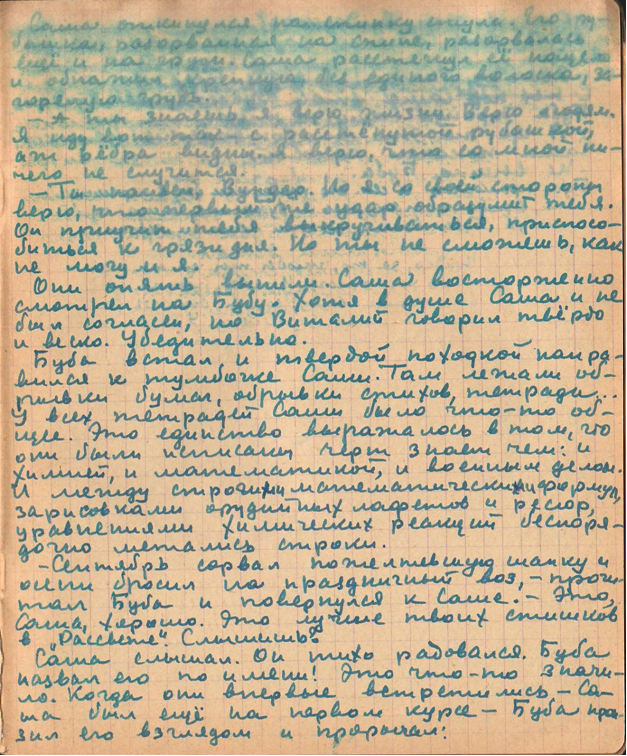 Саша откинулся на спинку стула. Его ру-
башка, разорванная на спине, разорвалась
ещё и на груди. Саша расстегнул её
и обнажил крепкую, без единого волоска, за-
горелую грудь.
– А ты знаешь, я верю жизни. Верю людям.
Я иду вот так – с расстёгнутой рубашкой,
аж рёбра видны. И верю, что со мной ни-
чего не случится.
– Ты наивен, Вундер. Но я со своей стороны
верю, что первый же удар образумит тебя.
Он приучит тебя выкручиваться, приспосо-
биться к грязи дня. Но ты не сможешь, как
не могу и я.
Они опять выпили. Саша восторженно
смотрел на Бубу. Хотя в душе Саша и не
был согласен, но Виталий говорил твёрдо
и веско. Убедительно.
Буба встал и твердой походкой напра-
вился к тумбочке Саши. Там лежали об-
рывки бумаг, обрывки стихов, тетради...
У всех тетрадей Саши было что-то об-
щее. Это единство выражалось в том, что
они были исписаны черт знает чем: и
химией, и математикой, и военным делом.
И между строгими математическими формул,
зарисовками орудийных лафетов и рессор,
уравнениями химических реакций беспоря-
дочно метались строки.
– Сентябрь сорвал пожелтевшую шапку и
осени бросил на праздничный воз, – прочи-
тал Буба и повернулся к Саше. – Это,
Саша, хорошо. Это лучше твоих стишков
в "Рассвете". Слышишь?
Саша слышал. Он тихо радовался. Буба
назвал его по имени! Это что-то значи-
ло. Когда они впервые встретились – Са-
ша был ещё на первом курсе – Буба прон-
зил его взглядом и прорычал: